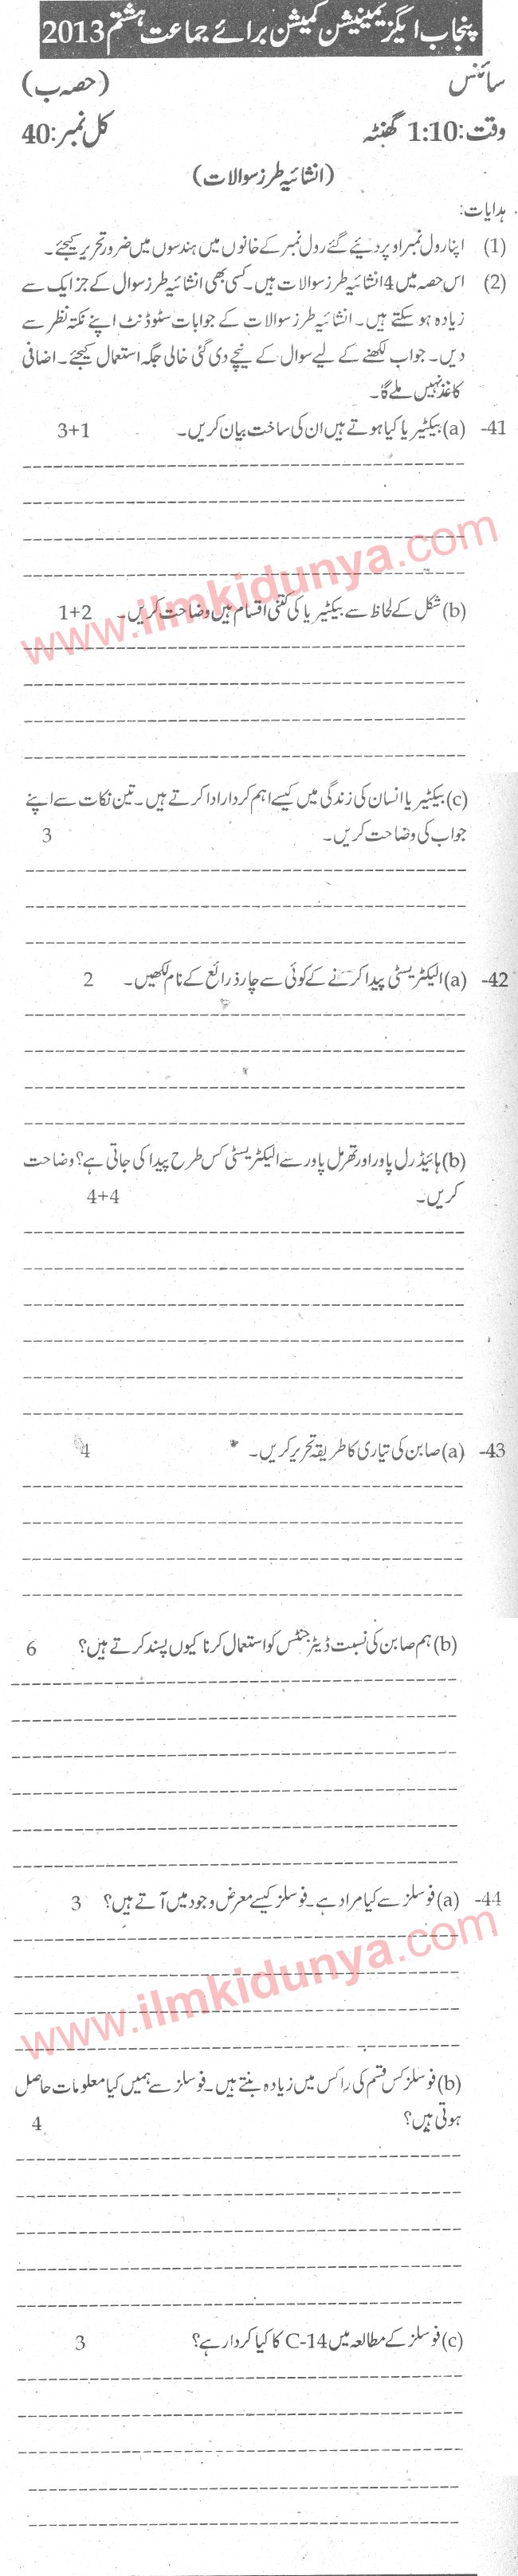 پنجاب ایگزیمینیشن کمیشن برائے جماعت ہشتم 2013
سائنس (حصہ ب)
وقت: 1:10 گھنٹہ کل نمبر: 40
(انشائیہ طرز سوالات)
ہدایات:
(1) اپنا رول نمبر اوپر دیئے گئے رول نمبر کے خانوں میں ہندسوں میں ضرور تحریر کیجئے۔
(2) اس حصہ میں 4 انشائیہ طرز سوالات ہیں۔ کسی بھی انشائیہ طرز سوال کے جز ایک سے
زیادہ ہو سکتے ہیں۔ انشائیہ طرز سوالات کے جوابات سٹوڈنٹ اپنے نکتہ نظر سے
دیں۔ جواب لکھنے کے لیے سوال کے نیچے دی گئی خالی جگہ استعمال کیجئے۔ اضافی
کاغذ نہیں ملے گا۔
41- (a) بیکٹیریا کیا ہوتے ہیں ان کی ساخت بیان کریں۔ 3+1
www.ilmkidunya.com
(b) شکل کے لحاظ سے بیکٹیریا کی کتنی اقسام ہیں وضاحت کریں۔ 1+2
(c) بیکٹیریا انسان کی زندگی میں کیسے اہم کردار ادا کرتے ہیں۔ تین نکات سے اپنے
جواب کی وضاحت کریں۔ 3
42- (a) الیکٹریسٹی پیدا کرنے کے کوئی سے چار ذرائع کے نام لکھیں۔ 2
(b) ہائیڈرل پاور اور تھرمل پاور سے الیکٹریسٹی کس طرح پیدا کی جاتی ہے؟ وضاحت
کریں۔ 4+4
43- (a) صابن کی تیاری کا طریقہ تحریر کریں۔ 4
(b) ہم صابن کی نسبت ڈیٹرجنٹس کو استعمال کرنا کیوں پسند کرتے ہیں؟ 6
44- (a) فوسلز سے کیا مراد ہے۔ فوسلز کیسے معرض وجود میں آتے ہیں؟ 3
www.ilmkidunya.com
(b) فوسلز کس قسم کی راکس میں زیادہ بنتے ہیں۔ فوسلز سے ہمیں کیا معلومات حاصل
ہوتی ہیں؟ 4
(c) فوسلز کے مطالعہ میں C-14 کا کیا کردار ہے؟ 3